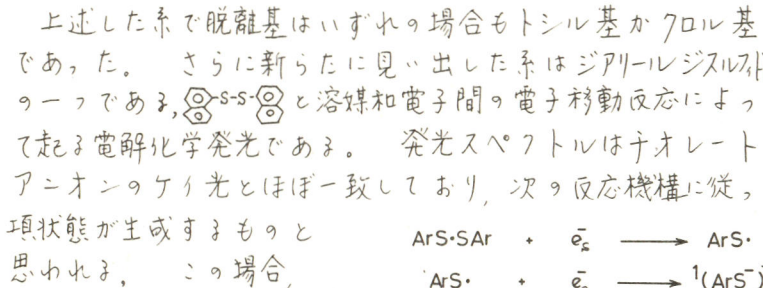 上述した系で脱離基はいずれの場合もトシル基かクロル基
であった。 さらに新らたに見い出した系はジアリールジスルフィド
の一つである, -S-S- と溶媒和電子間の電子移動反応によっ
て起る電解化学発光である。 発光スペクトルはチオレート
アニオンのケイ光とほぼ一致しており, 次の反応機構に従っ
項状態が生成するものと ArS·SAr + e⁻s → ArS·
思われる, この場合, ArS· + e⁻s → ¹(ArS⁻)